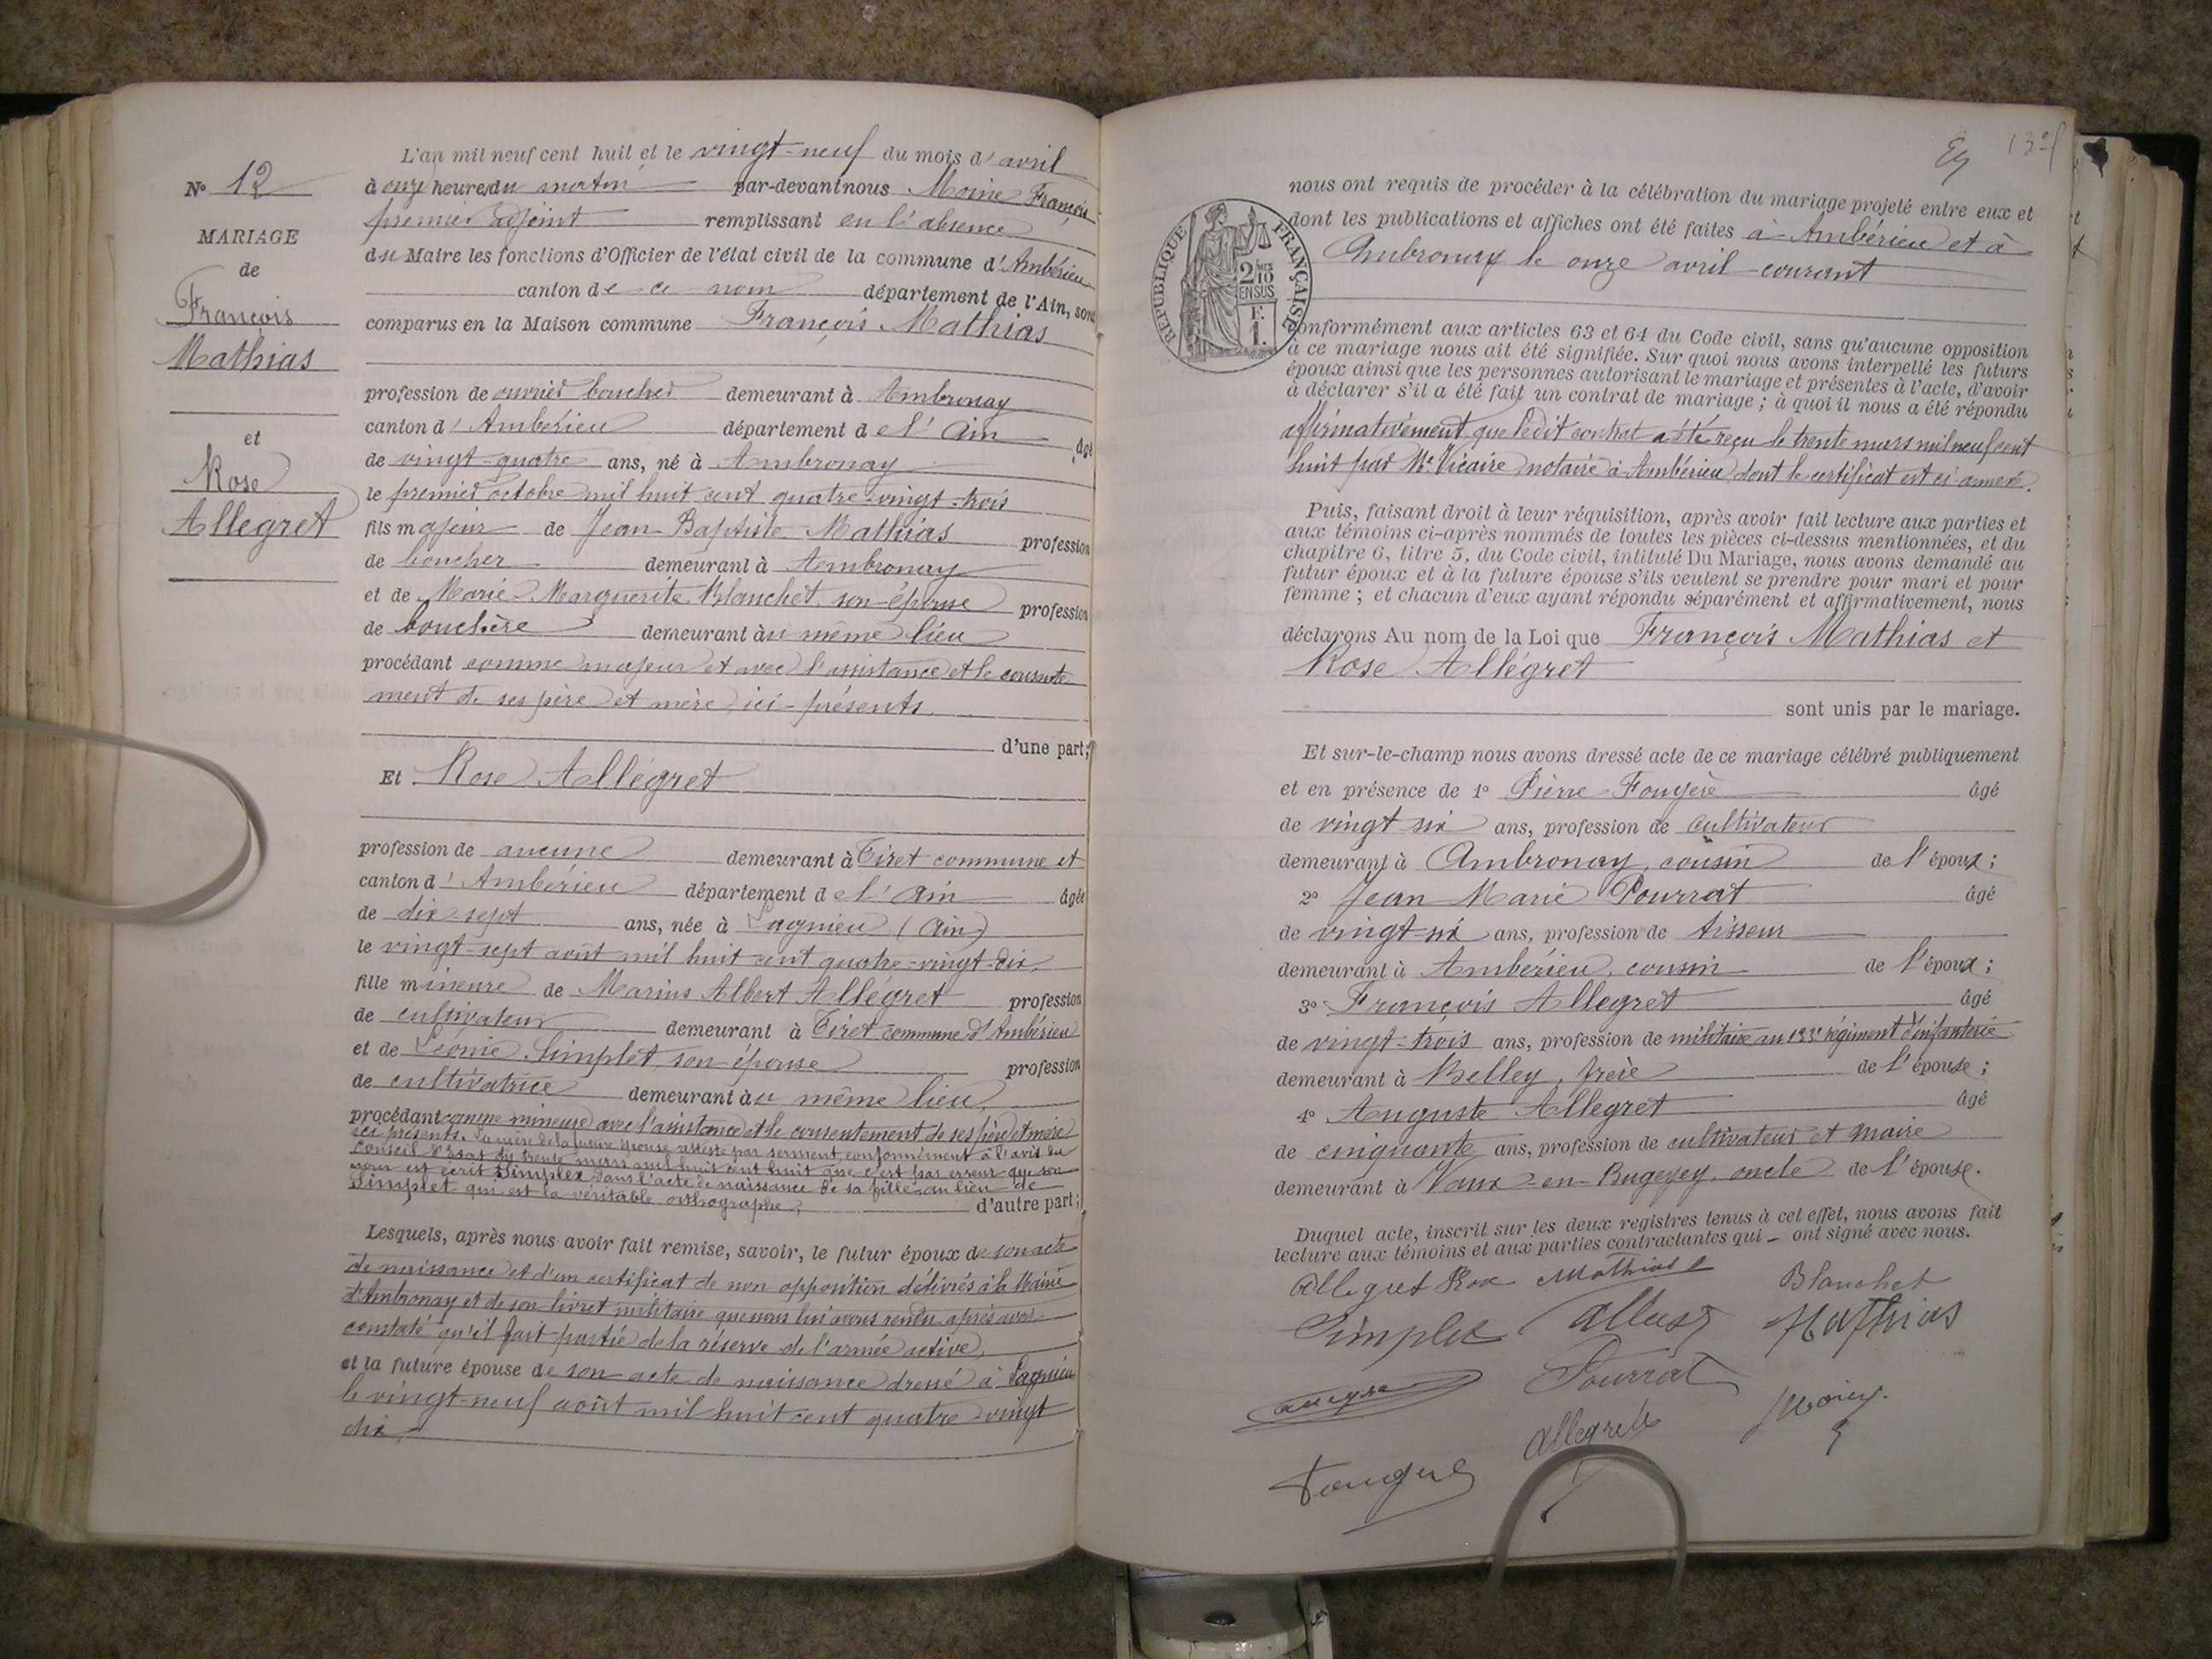 N° 12
MARIAGE
de
François
Mathias
et
Rose
Allegret
L'an mil neuf cent huit et le vingt-neuf du mois d'avril
à onze heures du matin par-devant nous Moine François
premier adjoint remplissant en l'absence
du Maire les fonctions d'Officier de l'état civil de la commune d'Ambérieu
canton de ce nom département de l'Ain, sont
comparus en la Maison commune François Mathias
profession de ouvrier boucher demeurant à Ambronay
canton d'Ambérieu département de l'Ain âgé
de vingt-quatre ans, né à Ambronay
le premier octobre mil huit cent quatre-vingt-trois
fils majeur de Jean-Baptiste Mathias profession
de boucher demeurant à Ambronay
et de Marie-Marguerite Blanchet son épouse profession
de bouchère demeurant au même lieu
procédant comme majeur et avec l'assistance et le consente-
ment de ses père et mère, ici présents
d'une part;
Et Rose Allégret
profession de aucune demeurant à Tiret commune et
canton d'Ambérieu département de l'Ain âgée
de dix-sept ans, née à Lagnieu (Ain)
le vingt-sept août mil huit cent quatre-vingt-dix,
fille mineure de Marius Albert Allégret profession
de cultivateur demeurant à Tiret commune d'Ambérieu
et de Léonie Simplet, son épouse profession
de cultivatrice demeurant au même lieu,
procédant comme mineure avec l'assistance et le consentement de ses père et mère
ici présents. La mère de la future épouse atteste par serment, conformément à l'avis du
Conseil d'Etat du trente mars mil huit cent huit que c'est par erreur que son
nom est écrit Simplex dans l'acte de naissance de sa fille au lieu de
Simplet qui est la véritable orthographe, d'autre part;
Lesquels, après nous avoir fait remise, savoir, le futur époux de son acte
de naissance et d'un certificat de non opposition délivrés à la Mairie
d'Ambronay et de son livret militaire que nous lui avons rendu après avoir
constaté qu'il fait partie de la réserve de l'armée active,
et la future épouse de son acte de naissance dressé à Lagnieu
le vingt-neuf août mil huit cent quatre-vingt
dix,
nous ont requis de procéder à la célébration du mariage projeté entre eux et
dont les publications et affiches ont été faites à Ambérieu et à
Ambronay le onze avril courant
RÉPUBLIQUE FRANÇAISE
2 10MES
EN SUS
F.
1.
conformément aux articles 63 et 64 du Code civil, sans qu'aucune opposition
à ce mariage nous ait été signifiée. Sur quoi nous avons interpellé les futurs
époux ainsi que les personnes autorisant le mariage et présentes à l'acte, d'avoir
à déclarer s'il a été fait un contrat de mariage ; à quoi il nous a été répondu
affirmativement que ledit contrat a été reçu le trente mars mil neuf cent
huit par Me Vicaire notaire à Ambérieu dont le certificat est ci-annexé.
Puis, faisant droit à leur réquisition, après avoir fait lecture aux parties et
aux témoins ci-après nommés de toutes les pièces ci-dessus mentionnées, et du
chapitre 6, titre 5, du Code civil, intitulé Du Mariage, nous avons demandé au
futur époux et à la future épouse s'ils veulent se prendre pour mari et pour
femme ; et chacun d'eux ayant répondu séparément et affirmativement, nous
déclarons Au nom de la Loi que François Mathias et
Rose Allégret
sont unis par le mariage.
Et sur-le-champ nous avons dressé acte de ce mariage célébré publiquement
et en présence de 1° Pierre Fougère âgé
de vingt six ans, profession de cultivateur
demeurant à Ambronay, cousin de l'époux ;
2° Jean Marie Pourrat âgé
de vingt-six ans, profession de tisseur
demeurant à Ambérieu, cousin de l'époux ;
3° François Allegret âgé
de vingt-trois ans, profession de militaire au 133e régiment d'infanterie
demeurant à Belley, frère de l'épouse ;
4° Auguste Allegret âgé
de cinquante ans, profession de cultivateur et maire
demeurant à Vaux-en-Bugey, oncle de l'épouse.
Duquel acte, inscrit sur les deux registres tenus à cet effet, nous avons fait
lecture aux témoins et aux parties contractantes qui - ont signé avec nous.
Allegret Rose Mathias Blanchet
Simplet Mathias
Pourrat
Allegret